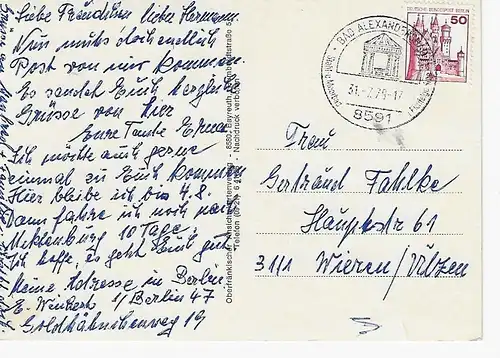 Liebe Traudchen lieber Hermann.
Nun muß doch endlich
Post von mir kommen.
Es sendet Euch herzliche
Grüsse von hier
Eure Tante Erna
Ich möchte auch gerne
einmal zu Euch kommen
Hier bleibe ich bis 4.8.
Dann fahre ich noch nach
Meklenburg 10 Tage.
Ich hoffe, es geht Euch gut
Meine Adresse in Berlin
E. Winkert 1/Berlin 47
Goldhähnchenweg 19
8580 Bayreuth
Nachdruck verboten
Telefon
DEUTSCHE BUNDESPOST BERLIN
50
BAD ALEXANDERSBAD
31.-7.79-17
8591
Frau
Gertraud Fahlke
Hauptstr 61
3111 Wieren/Ülzen